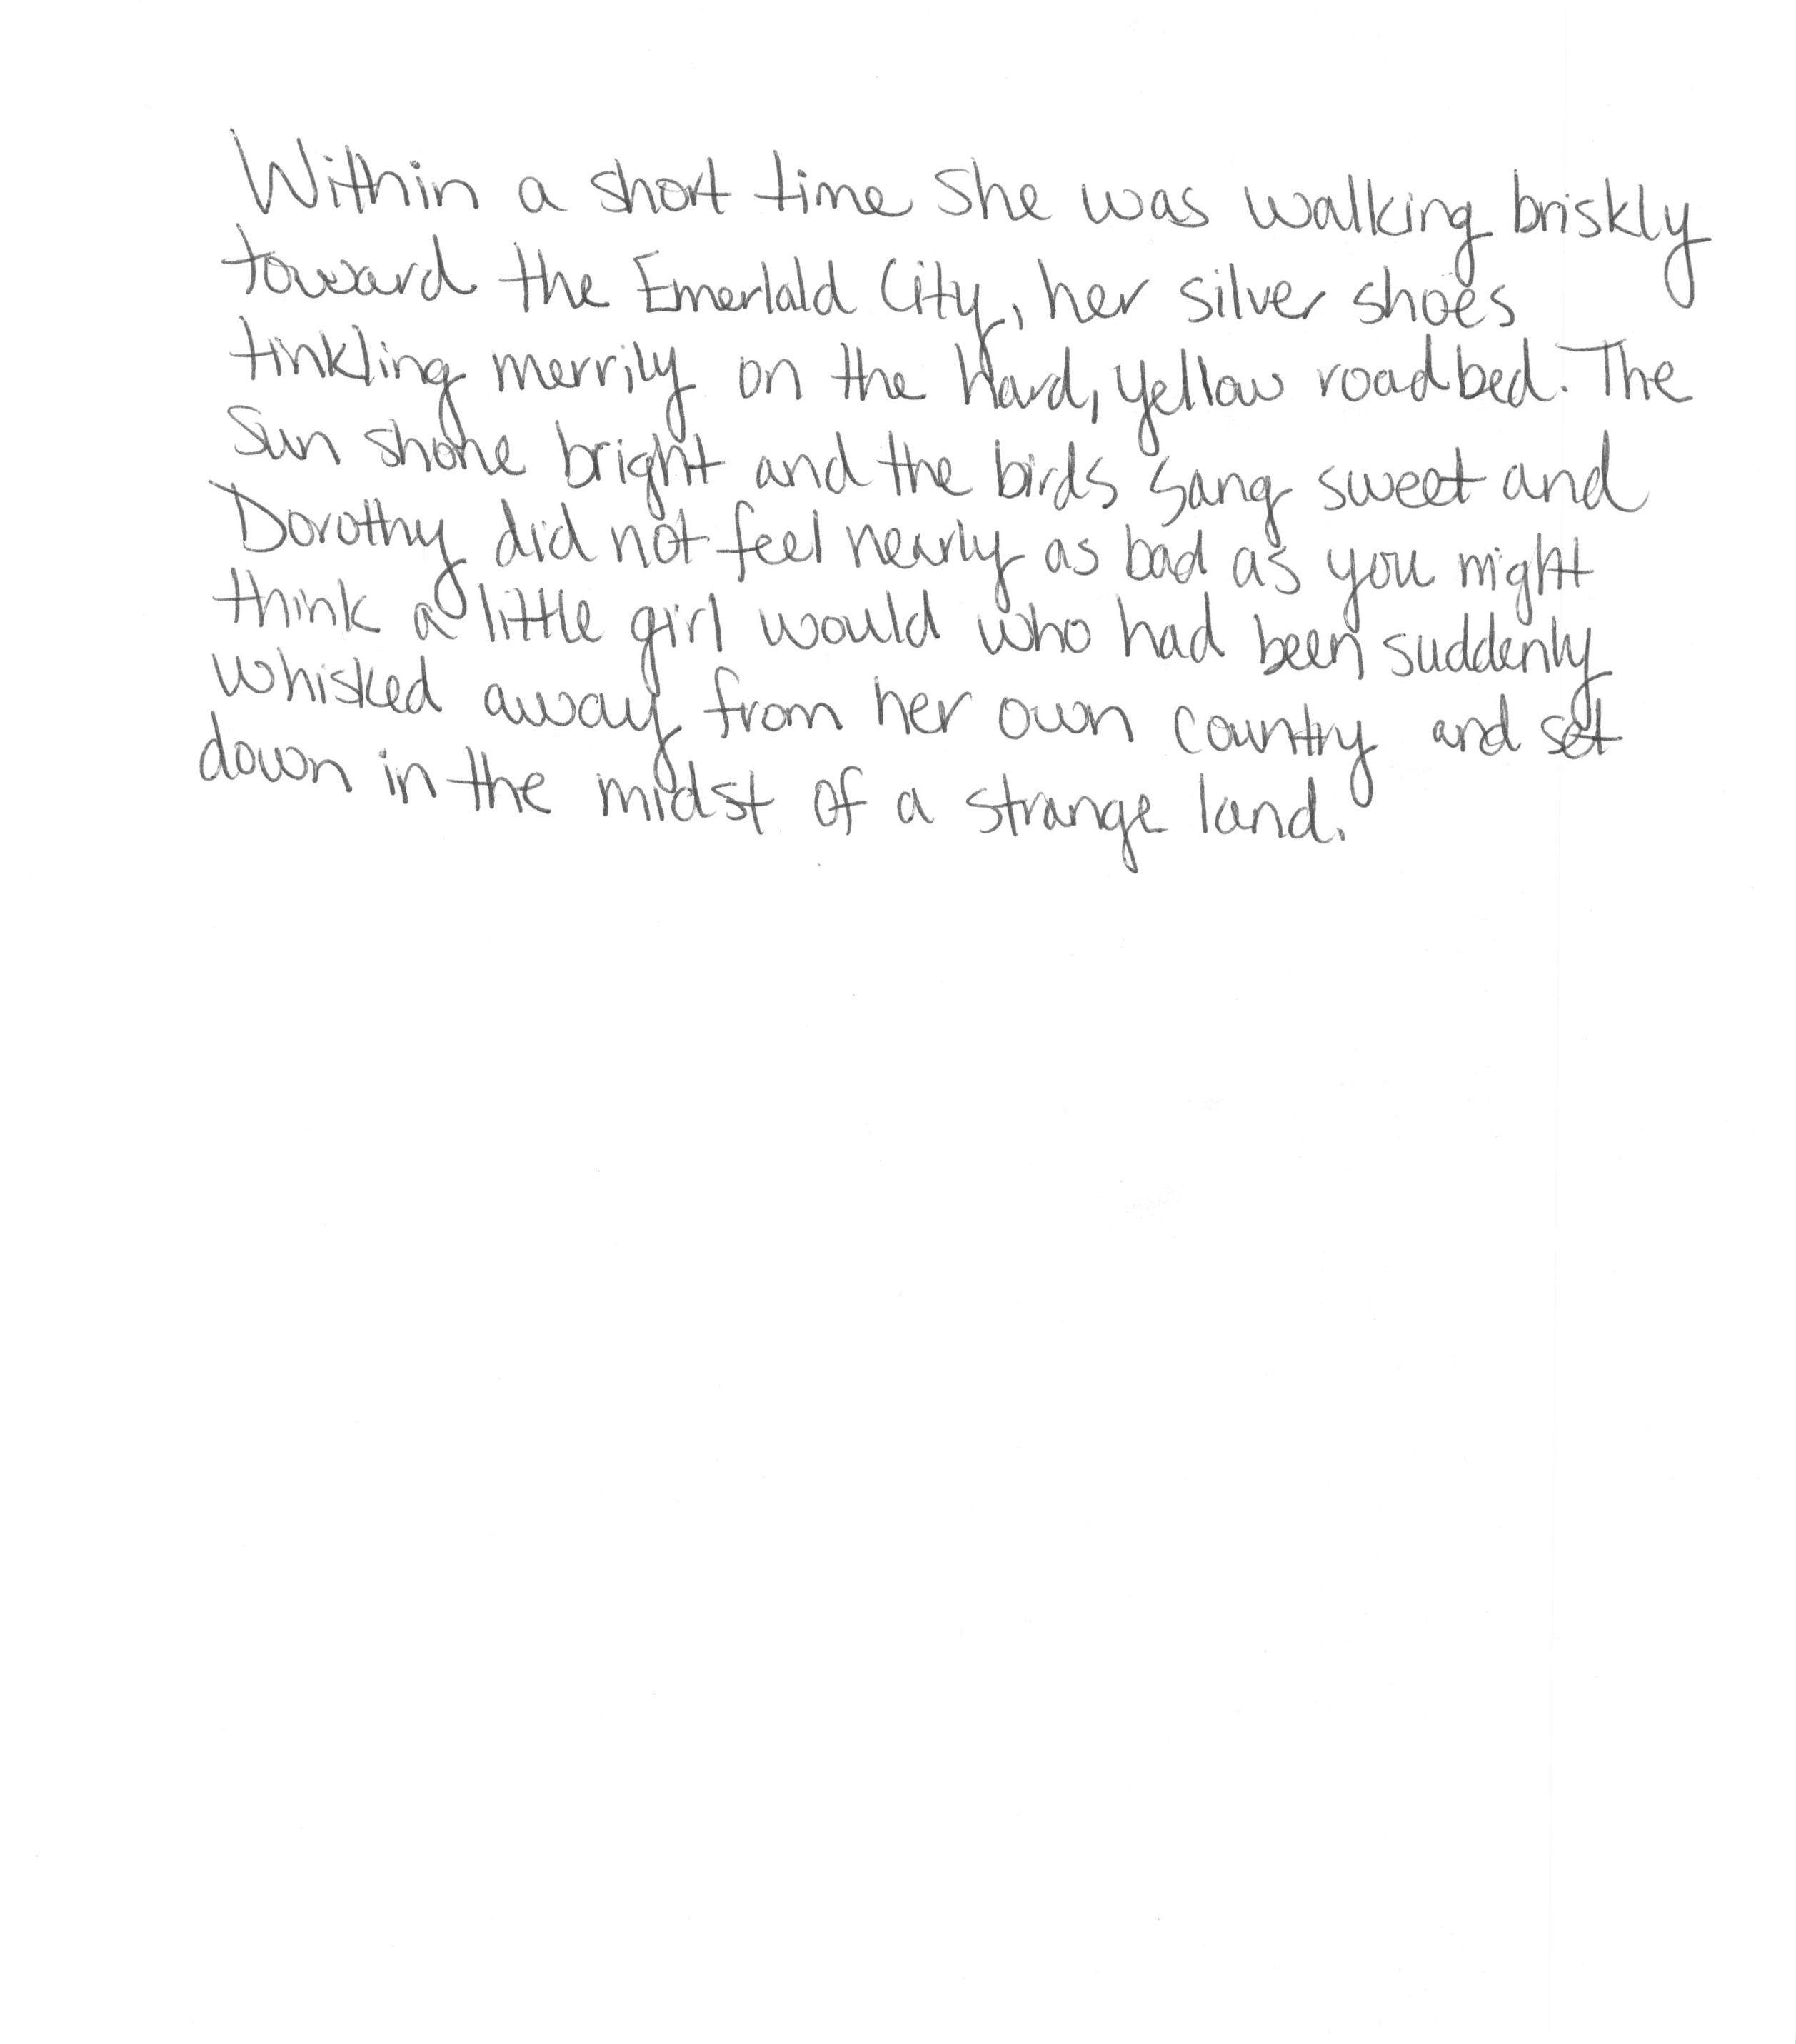 Within a short time she was walking briskly
toward the Emerlald City, her silver shoes
tinkling merrily on the hard, yellow roadbed. The
sun shone bright and the birds sang sweet and
Dorothy did not feel nearly as bad as you might
think a little girl would who had been suddenly
whisked away from her own country and set
down in the midst of a strange land.